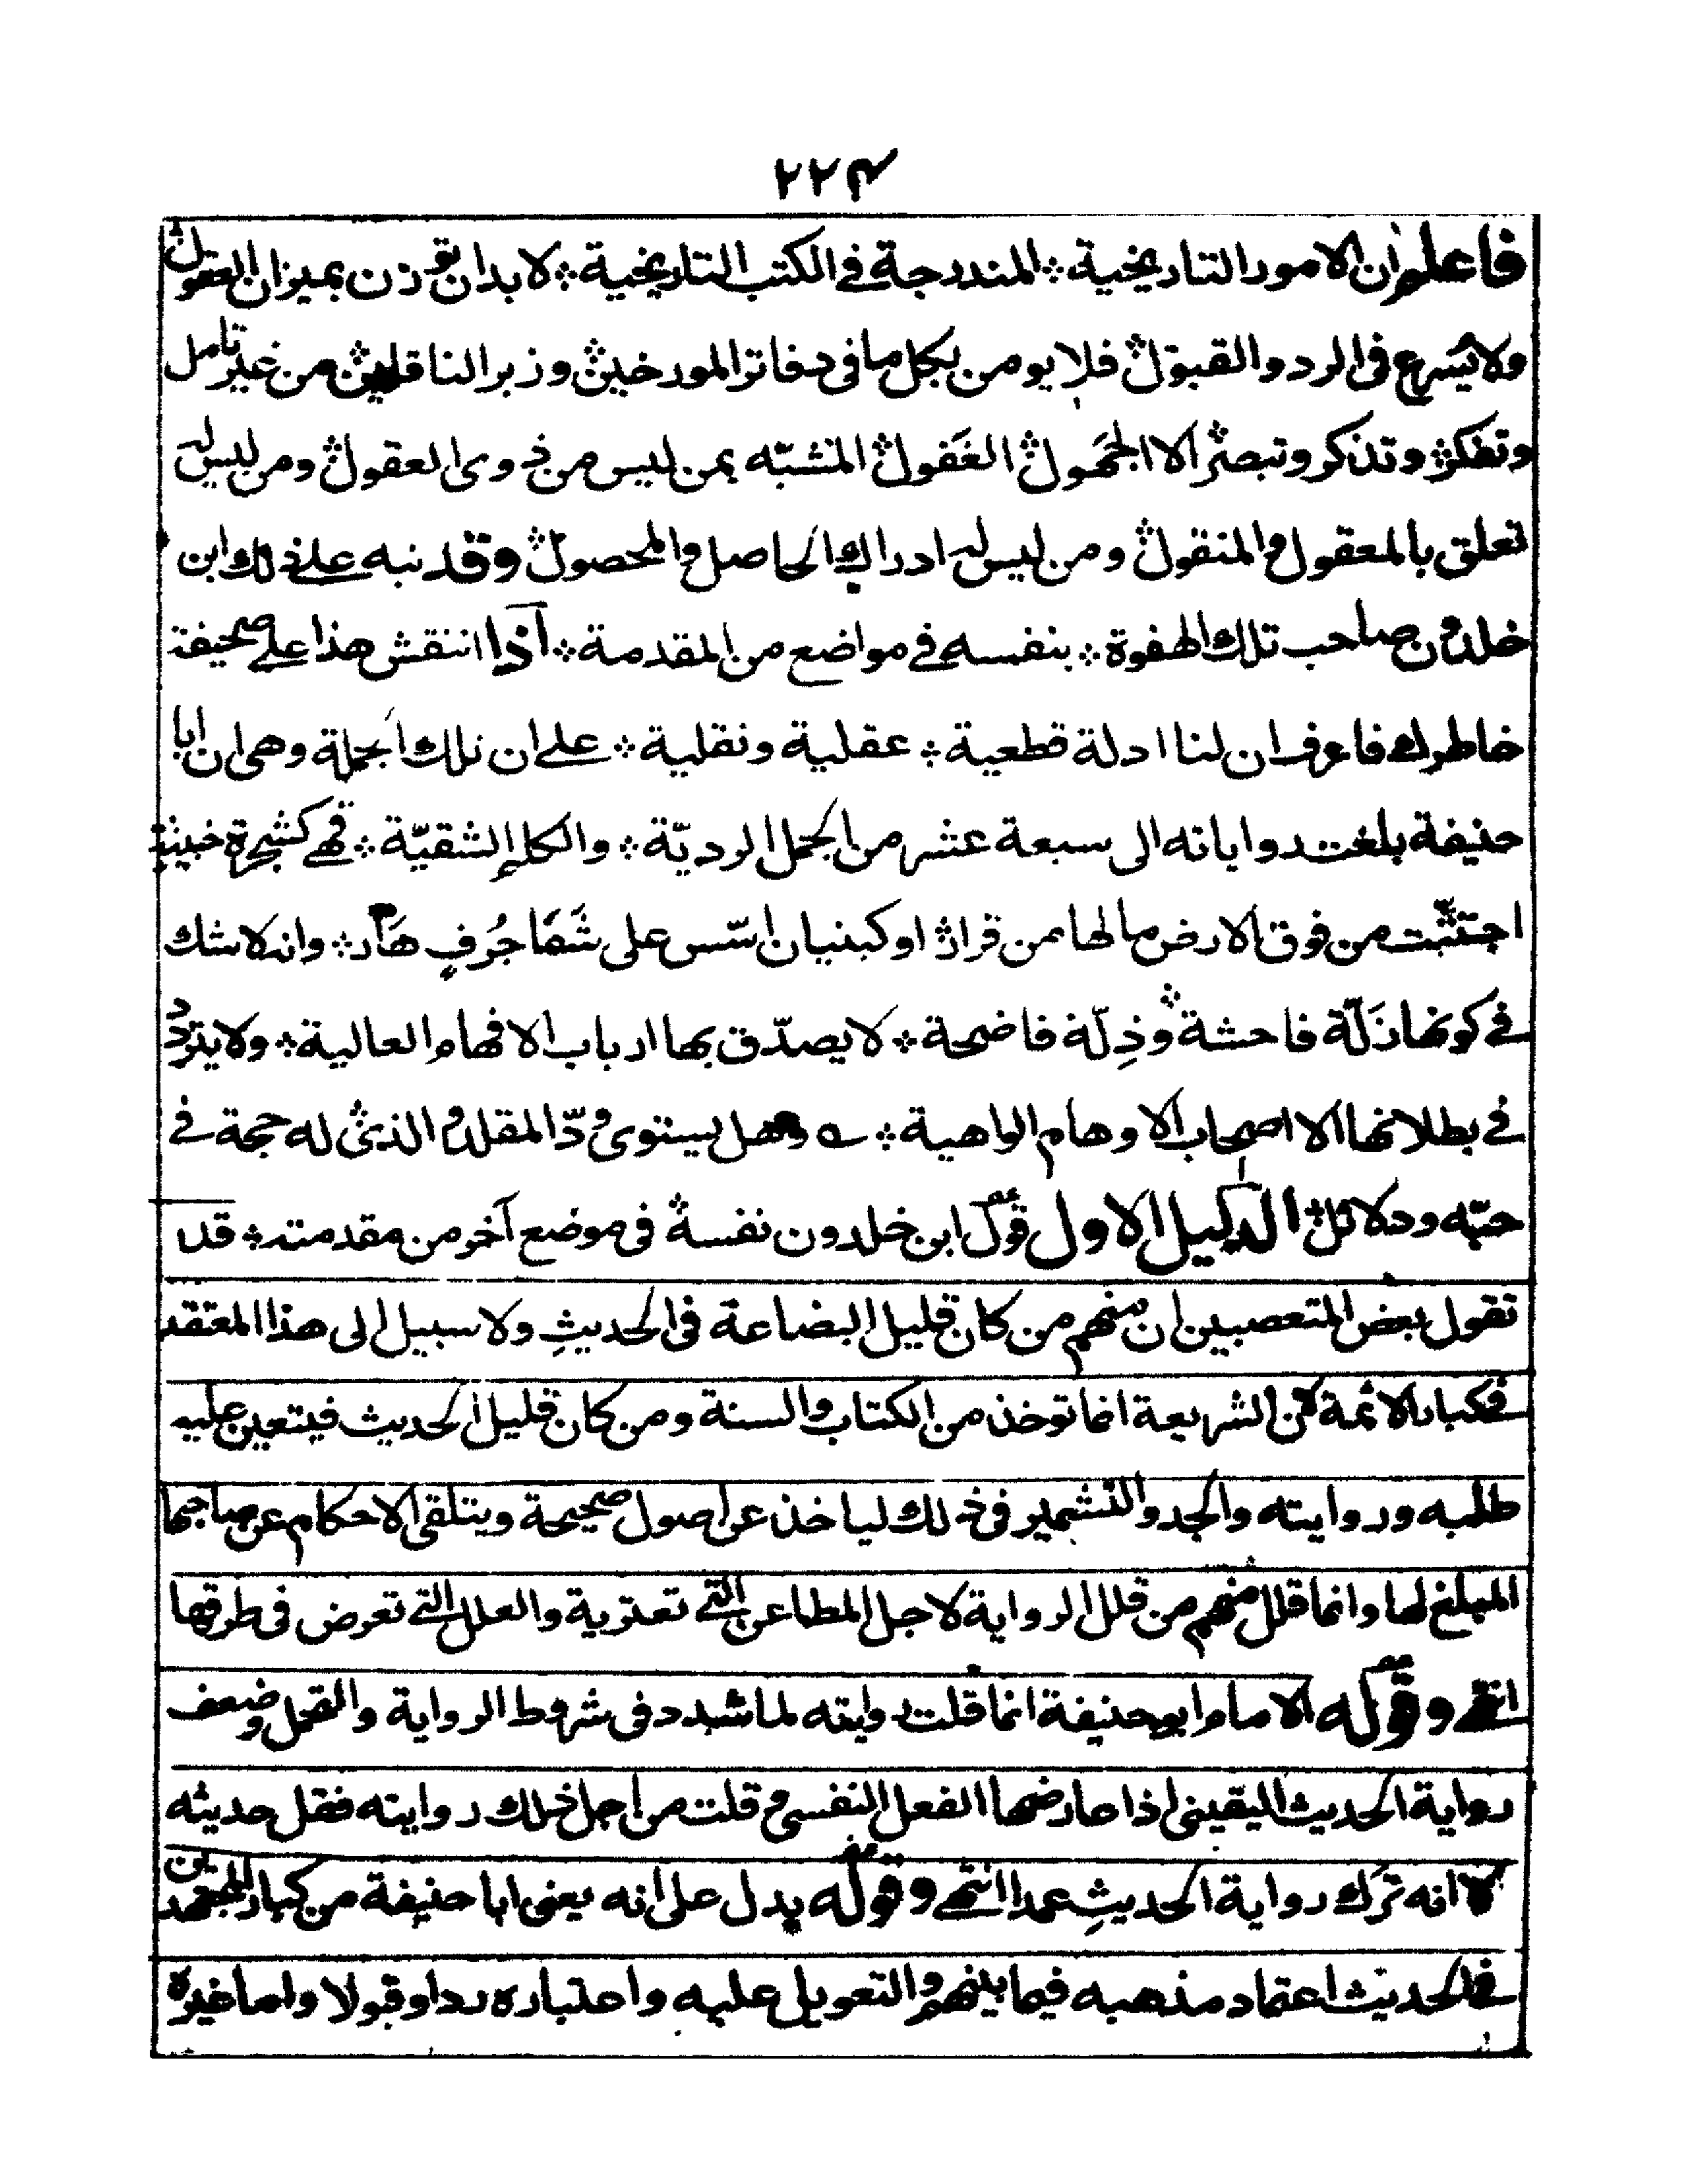 ٢٢٤
فاعلم ان الامور التاريخية ؞ المندرجة فى الكتب التاريخية ؞ لا بد ان توزن بميزان العقول ؞
ولا يُسَرع فى الرد والقبول ؞ فلا يومن بكل ما فى دفاتر المورخين ؞ وزبر الناقلين ؞ من غير تامل
وتفكر ؞ وتذكر وتبصر ؞ الا الجَهول ؞ الغَفول ؞ المشبّه بمن ليس من ذوى العقول ؞ ومن ليس له
تعلق بالمعقول والمنقول ؞ ومن ليس له ادراك الحاصل والمحصول ؞ وقد نبه على ذلك ابن
خلدون صاحب تلك الهفوة ؞ بنفسه فى مواضع من المقدمة ؞ اذا انتقش هذا على صحيفة
خاطرك فاعرف ان لنا ادلة قطعية ؞ عقلية ونقلية ؞ على ان تلك الجملة وهى ان ابا
حنيفة بلغت رواياته الى سبعة عشر من الجمل الرديّة ؞ والكلم الشقيّة ؞ فهى كشجرة خبيثة
اجتثّت من فوق الارض مالها من قرار ؞ او كبنيان اسّس على شَفَا جُرُفٍ هَار ؞ وانه لا شك
فى كونها زَلّة فاحشة ؞ وذِلّة فاضحة ؞ لا يصدّق بها ارباب الافهام العالية ؞ ولا يتردد
فى بطلانها الا اصحاب الاوهام الواهية ؞ ؎ وهل يستوى ودّ المقلد والذى ؞ له حجة فى
حبّه ودلائل ؞ الدليل الاول قول ابن خلدون نفسه ؞ فى موضع آخر من مقدمته ؞ قد
تقول بعض المتعصبين ان منهم من كان قليل البضاعة فى الحديثِ ولا سبيل الى هذا المعتقد
فى كبار الائمة لان الشريعة انما توخذ من الكتاب والسنة ومن كان قليل الحديث فيتعين عليه
طلبه وروايته والجد والتشمير فى ذلك لياخذ عن اصول صحيحة ويتلقى الاحكام عن صاحبها
المبلغ لها وانما قلل منهم من قلل الرواية لاجل المطاعن التى تعتريه والعلل التى تعرض فى طرقها
انتهى وقوله الامام ابو حنيفة انما قلت روايته لما شدد فى شروط الرواية والتحمل وضعف
رواية الحديث اليقينى اذا عارضها الفعل النفسى وقلت من اجل ذلك روايته فقل حديثه
لا انه ترك رواية الحديثِ عمدا انتهى وقوله يدل على انه يعنى ابا حنيفة من كبار المجتهدين
فى الحديث اعتماد مذهبه فيما بينهم والتعويل عليه واعتباره ردا وقبولا واما غيره